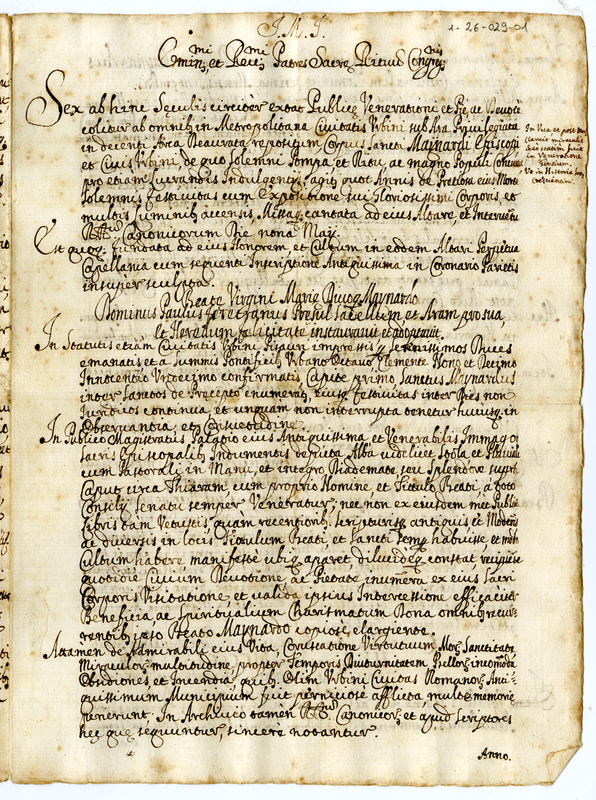 J. M. J.
1-26-029-01
Emin.mi et Rev.mi Patres Sacre Rituū Congr.nis
Sex abhinc Seculis circiter extat Publicę Venerationi et Fidei Devote
colitur ab omnib, in Metropolitana Civitatis Vrbini sub Ara Privilegiata
in decenti Arca Deaurata repositum Corpus Sancti Maynardi Episcopi
et Civis Vrbini, de quo solemni Pompa et Ritu, ac magno Populi Concursu
pro etiam lucrandis Indulgentijs agit, quot Annis de Pretiosa eius Morte
solemnis festivitas cum Expositione sui Gloriosissimi Corporis, et
multis Luminib, accensis, Missaq, cantata ad eius Altare, et Interventu
Canonicorum Die nona Maij.
Est quoq, fundata ad eius Honorem, et Cultum in eodem Altari Perpetua
Capellania cum sequenti Inscriptione Antiquissima in Coronario Parietis
insuper sculpta.
Beate Virgini Marie Divoq, Maynardo
Dominus Paulus Presul Sacellum et Aram pro sua,
et Heredum felicitate instauravit et adoptavit.
In Statutis etiam Civitatis Vrbini Pisauri impressis p, serenissimos Duces
emanatis et a Summis Pontificib, Vrbano Octavo, Clemente Nono et Decimo
Innocentio Vndecimo confirmatis, Capite primo Sanctus Maynardus
inter Sanctos de Precepto enumerat, eiusq, festivitas inter Dies non
Juridicos continua, et unquam non interrupta tenetur huiusq, in
Observantia, et Consuetudine.
In Publico Magistratus Palatio eius Antiquissima, et Venerabilis Immago
sacris Episcopalib, Indumentis depicta, Alba videlicet Stola et Pluviali
cum Pastorali in Manu, et integro Diademate, seu Splendore supra
Caput circa Thiaram, cum proprio Nomine, et Titulo Beati, a toto
Consilij Senatu semper Veneratur, nec non ex eiusdem met Publicis
libris tam Vetustis, quam recentiorib, scripturisq, antiquis et Modernis
ac diversis in locis Titulum Beati, et Sancti semp, habuisse, et
Cultum habere manifeste ubiq, aparet, dilucideq, constat,
quotidie Civium Devotione ac Pietate inumera ex eius Sacri
Corporis Visitatione, et valida ipsius Intercessione efficaciter
Beneficia, ac Spiritualium Charismatum Dona omnib, recur-
rentib, ipso Beato Maynardo copiose elargiente.
Attamen de Admirabili eius Vita, Constatione Virtutum, Morum Sanctitate
Miraculorum multitudine, propter Temporis Diuturnitatem Bellorum incomoda
Obsidiones et Incendia quib, Olim Vrbini Civitas Romanorum Anti-
quissimum Municipium fuit perniciose afflicta multę memorię
perierunt. In Archivio tamen Canonicorum et apud Scriptores
hęc quę sequuntur, sincere notantur.
Anno.
In Vita et post mortem
claruit miraculis
fuit
in Veneratione
Gentium,
Vt in Historia